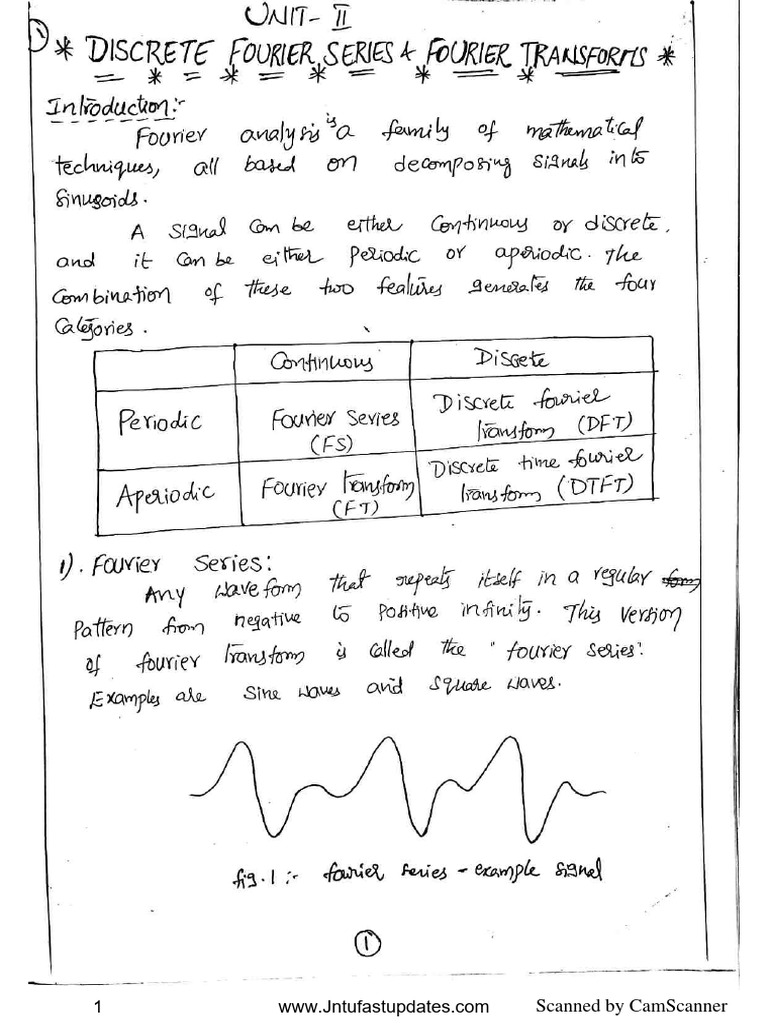 UNIT- II
1
* DISCRETE FOURIER SERIES & FOURIER TRANSFORMS *
Introduction:-
Fourier analysis is a family of mathematical
techniques, all based on decomposing signals into
Sinusoids.
A signal can be either Continuous or discrete,
and it can be either Periodic or aperiodic. The
Combination of these two features generates the four
Categories.
Continuous Discrete
Periodic Fourier Series (FS) Discrete fourier transform (DFT)
Aperiodic Fourier transform (FT) Discrete time fourier transform (DTFT)
1). Fourier Series:
Any waveform that repeats itself in a regular form
Pattern from negative to positive infinity. This version
of fourier transform is called the "fourier series".
Examples are Sine waves and Square waves.
fig.1:- fourier series - example signal
1
1 www.Jntufastupdates.com Scanned by CamScanner